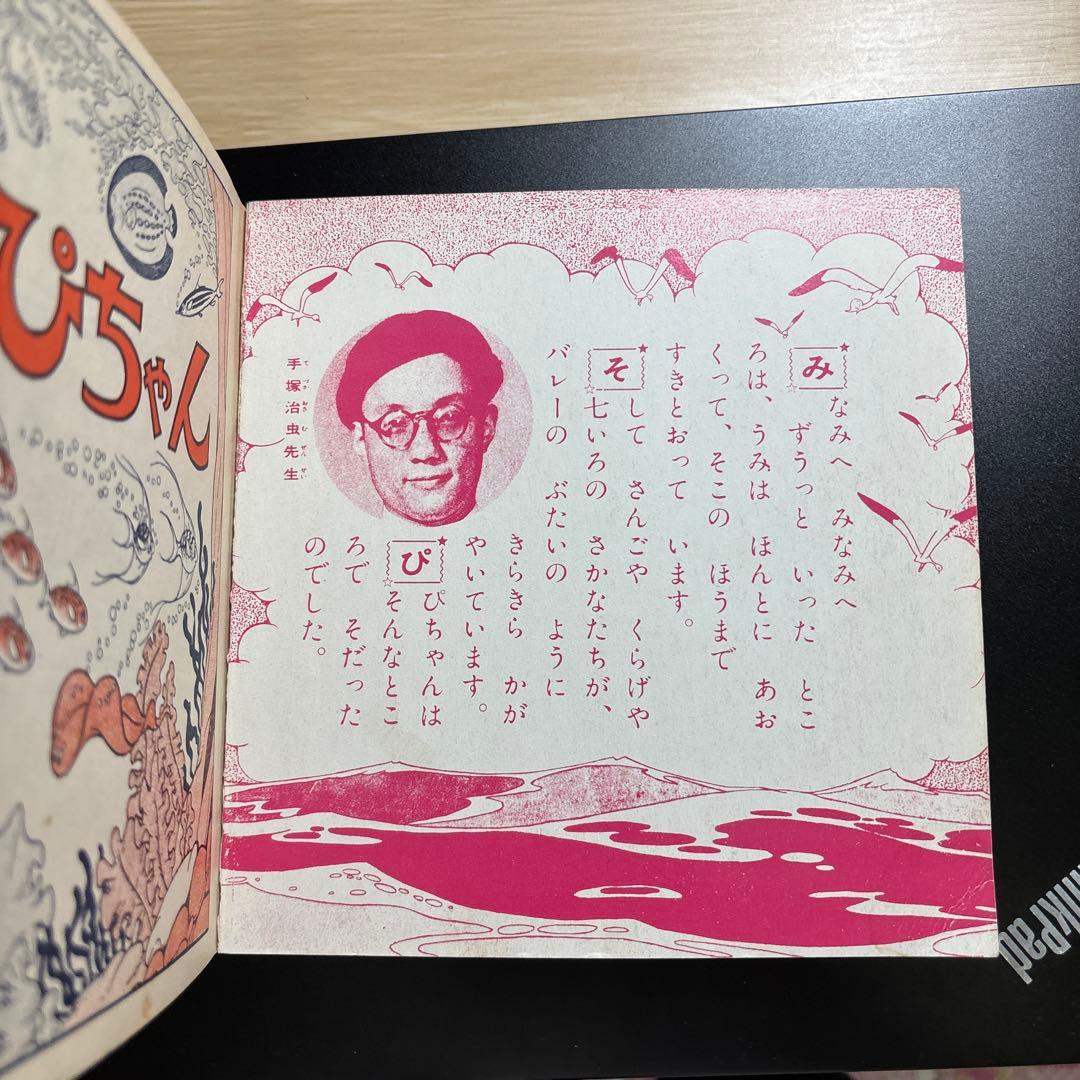 みなみへ みなみへ
ずうっと いった とこ
ろは、うみは ほんとに あお
くって、そこの ほうまで
すきとおって います。
そして さんごや くらげや
七いろの さかなたちが、
バレーの ぶたいの ように
きらきら かが
やいています。
ぴぴちゃんは
そんなとこ
ろで そだった
のでした。
手塚治虫先生
てづかおさむせんせい
ぴちゃん
ThinkPad